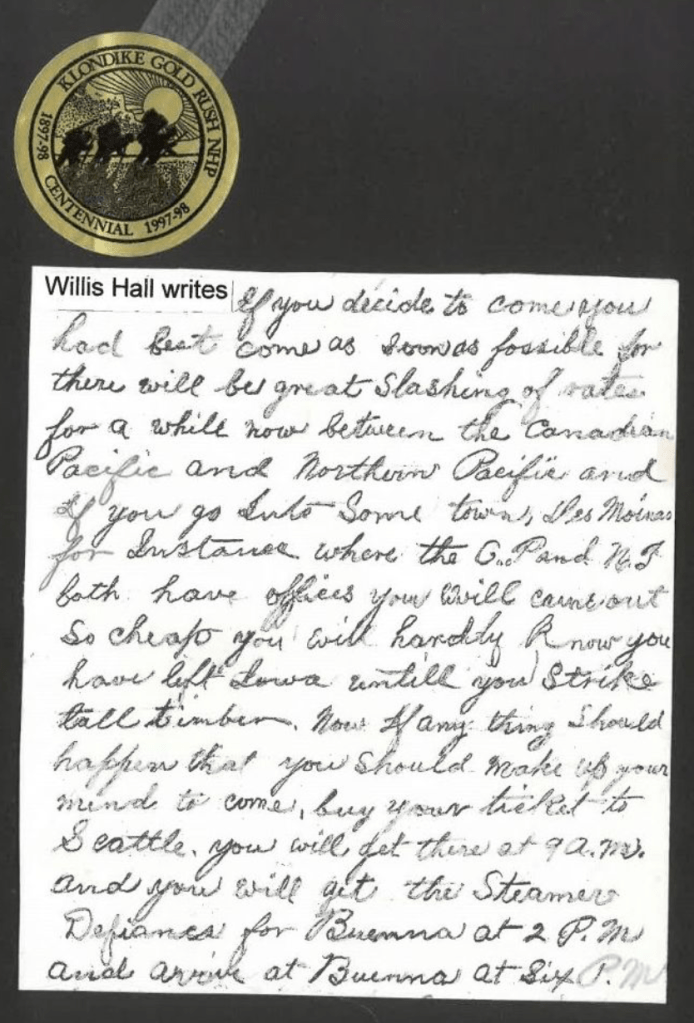 KLONDIKE GOLD RUSH NHP
1897-98
CENTENNIAL 1997-98
Willis Hall writes
If you decide to come you
had best come as soon as possible for
there will be great slashing of rates
for a while now between the Canadian
Pacific and Northern Pacific and
If you go Into Some town, Des Moines
for Instance where the C.P and N.P
both have offices you will come out
So cheap you will hardly Know you
have left Iowa untill you Strike
tall timber. Now If any thing Should
happen that you Should Make up your
mind to come, buy your ticket to
Seattle. you will get there at 9 a.m.
and you will get the Steamer
Defiance for Buenna at 2 P.M
and arrive at Buenna at Six P.M